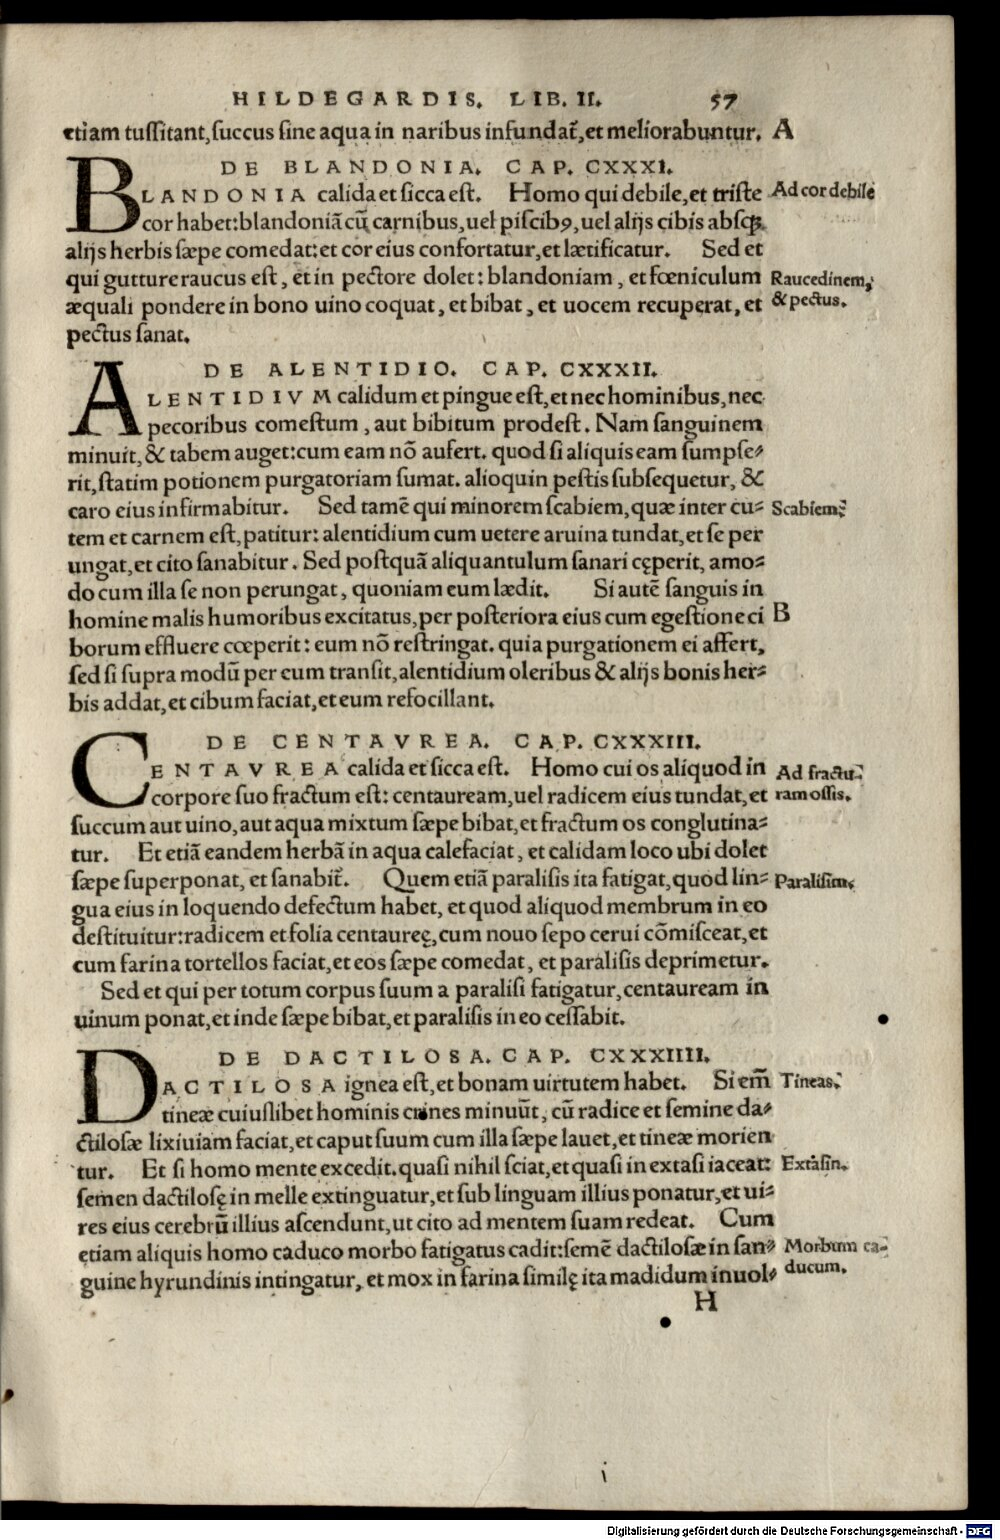 HILDEGARDIS. LIB. II. 57
etiam tussitant, succus sine aqua in naribus infundat᷑, et meliorabuntur. A
DE BLANDONIA. CAP. CXXXI.
BLANDONIA calida et sicca est. Homo qui debile, et triste Ad cor debile
cor habet: blandoniã cũ carnibus, uel piscibꝰ, uel alijs cibis absqꝫ
alijs herbis sæpe comedat: et cor eius confortatur, et lætificatur. Sed et
qui gutture raucus est, et in pectore dolet: blandoniam, et fœniculum Raucedinem,
æquali pondere in bono uino coquat, et bibat, et uocem recuperat, et & pectus.
pectus sanat.
DE ALENTIDIO. CAP. CXXXII.
ALENTIDIVM calidum et pingue est, et nec hominibus, nec
pecoribus comestum, aut bibitum prodest. Nam sanguinem
minuit, & tabem auget: cum eam nõ aufert. quod si aliquis eam sumpse-
rit, statim potionem purgatoriam sumat. alioquin pestis subsequetur, &
caro eius infirmabitur. Sed tamẽ qui minorem scabiem, quæ inter cu- Scabiem.
tem et carnem est, patitur: alentidium cum uetere aruina tundat, et se per
ungat, et cito sanabitur. Sed postquã aliquantulum sanari cęperit, amo-
do cum illa se non perungat, quoniam eum lædit. Si autẽ sanguis in
homine malis humoribus excitatus, per posteriora eius cum egestione ci B
borum effluere cœperit: eum nõ restringat. quia purgationem ei affert,
sed si supra modũ per eum transit, alentidium oleribus & alijs bonis her-
bis addat, et cibum faciat, et eum refocillant.
DE CENTAVREA. CAP. CXXXIII.
CENTAVREA calida et sicca est. Homo cui os aliquod in Ad fractu-
corpore suo fractum est: centauream, uel radicem eius tundat, et ram ossis.
succum aut uino, aut aqua mixtum sæpe bibat, et fractum os conglutina-
tur. Et etiã eandem herbã in aqua calefaciat, et calidam loco ubi dolet
sæpe superponat, et sanabit᷑. Quem etiã paralisis ita fatigat, quod lin- Paralisim.
gua eius in loquendo defectum habet, et quod aliquod membrum in eo
destituitur: radicem et folia centaureę, cum nouo sepo cerui cõmisceat, et
cum farina tortellos faciat, et eos sæpe comedat, et paralisis deprimetur.
Sed et qui per totum corpus suum a paralisi fatigatur, centauream in
uinum ponat, et inde sæpe bibat, et paralisis in eo cessabit.
DE DACTILOSA. CAP. CXXXIIII.
DACTILOSA ignea est, et bonam uirtutem habet. Si em̃ Tineas.
tineæ cuiuslibet hominis crines minuũt, cũ radice et semine da-
ctilosæ lixiuiam faciat, et caput suum cum illa sæpe lauet, et tineæ morien
tur. Et si homo mente excedit. quasi nihil sciat, et quasi in extasi iaceat: Extasin.
semen dactilosę in melle extinguatur, et sub linguam illius ponatur, et ui-
res eius cerebrũ illius ascendunt, ut cito ad mentem suam redeat. Cum
etiam aliquis homo caduco morbo fatigatus cadit: semẽ dactilosæ in san- Morbum ca-
guine hyrundinis intingatur, et mox in farina similę ita madidum inuol- ducum.
H
Digitalisierung gefördert durch die Deutsche Forschungsgemeinschaft - DFG